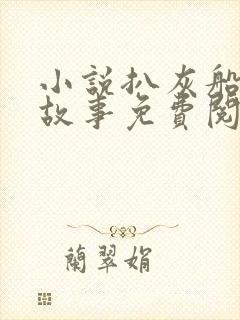 小說扒灰船
故事免費閱
蘭翠娟